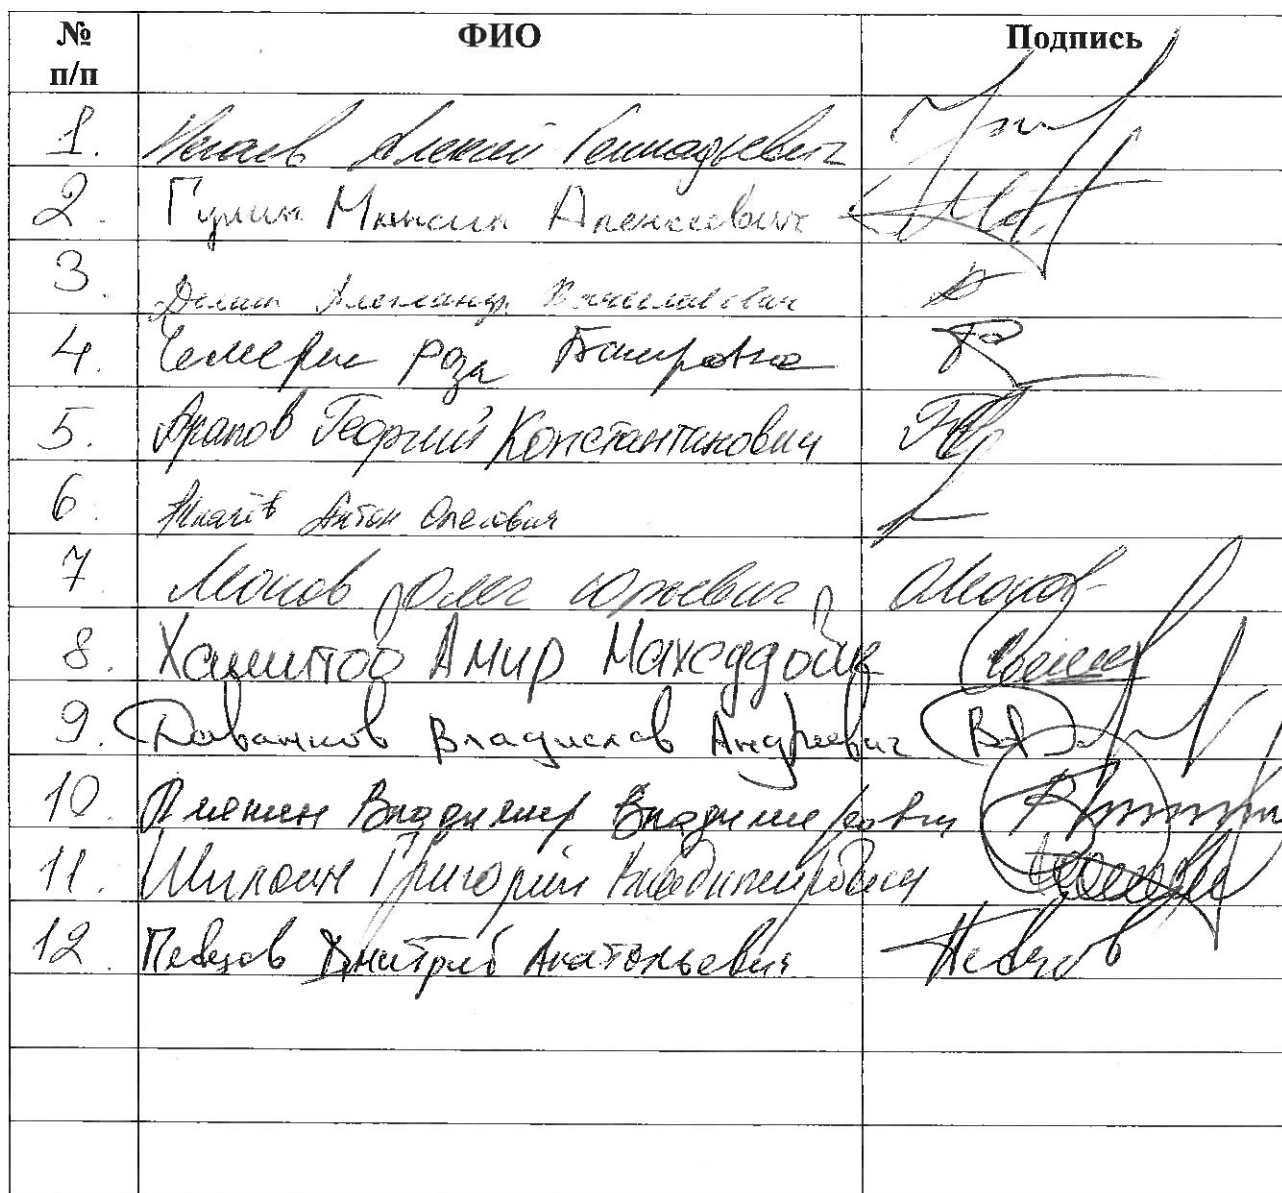 № п/п ФИО Подпись
1. Нечаев Алексей Геннадьевич
2. Гулин Максим Алексеевич
3. Демин Александр Вячеславович
4. Чемерис Роза Баировна
5. Арапов Георгий Константинович
6. Ткачёв Антон Олегович
7. Леонов Олег Юрьевич Леонов
8. Хамитов Амир Махсудович
9. Даванков Владислав Андреевич
10 Плякин Владимир Владимирович
11. Шилкин Григорий Владимирович
12 Певцов Дмитрий Анатольевич Певцов